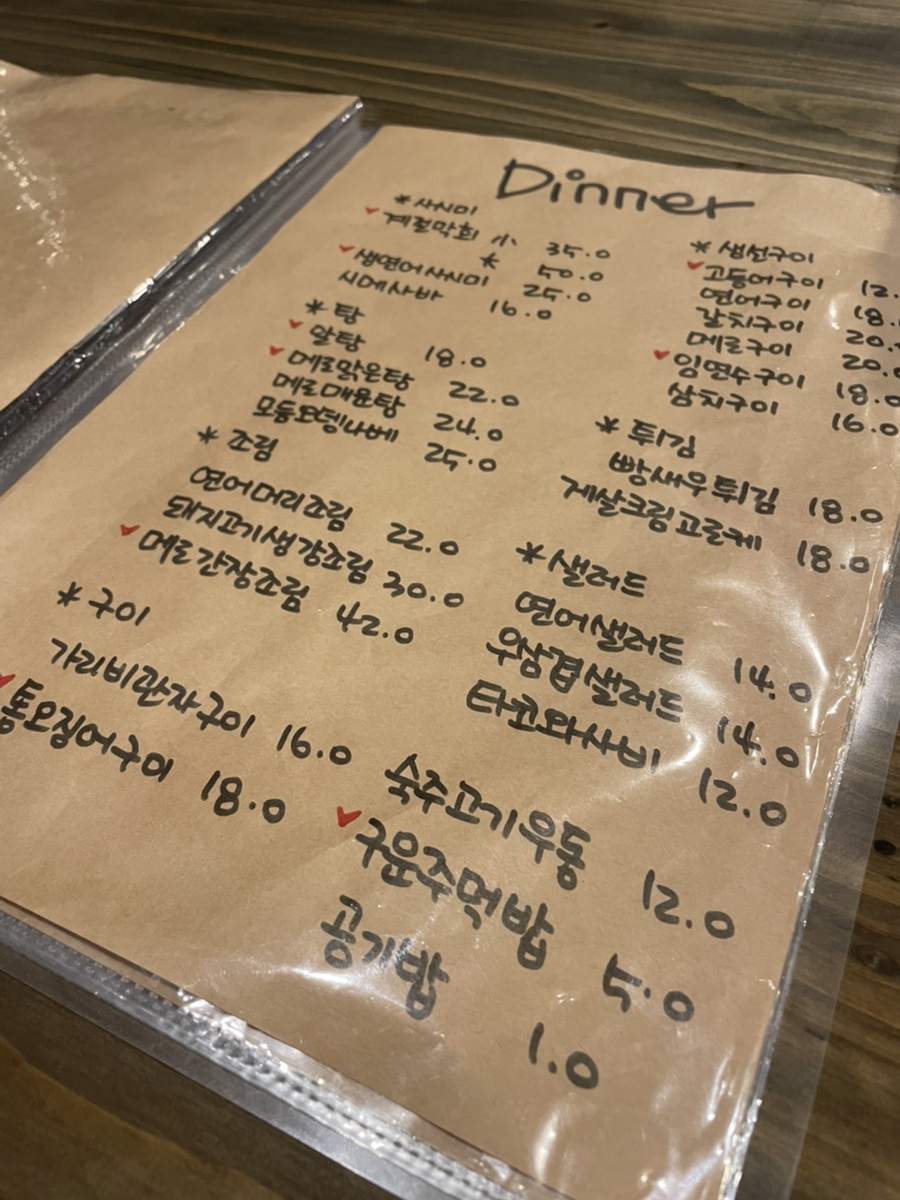 Dinner
* 사시미
계절막회 小 35.0
大 50.0
생연어사시미 25.0
시메사바 16.0
* 탕
알탕 18.0
메로맑은탕 22.0
메로매운탕 24.0
모듬오뎅나베 25.0
* 조림
연어머리조림 22.0
돼지고기생강조림 30.0
메로간장조림 42.0
* 구이
가리비관자구이 16.0
통오징어구이 18.0
* 생선구이
고등어구이 12.
연어구이 18.
갈치구이 20.
메로구이 20.0
임연수구이 18.0
삼치구이 16.0
* 튀김
빵새우튀김 18.0
게살크림고로케 18.0
* 샐러드
연어샐러드 14.0
우삼겹샐러드 14.0
타코와사비 12.0
숙주고기우동 12.0
구운주먹밥 5.0
공기밥 1.0